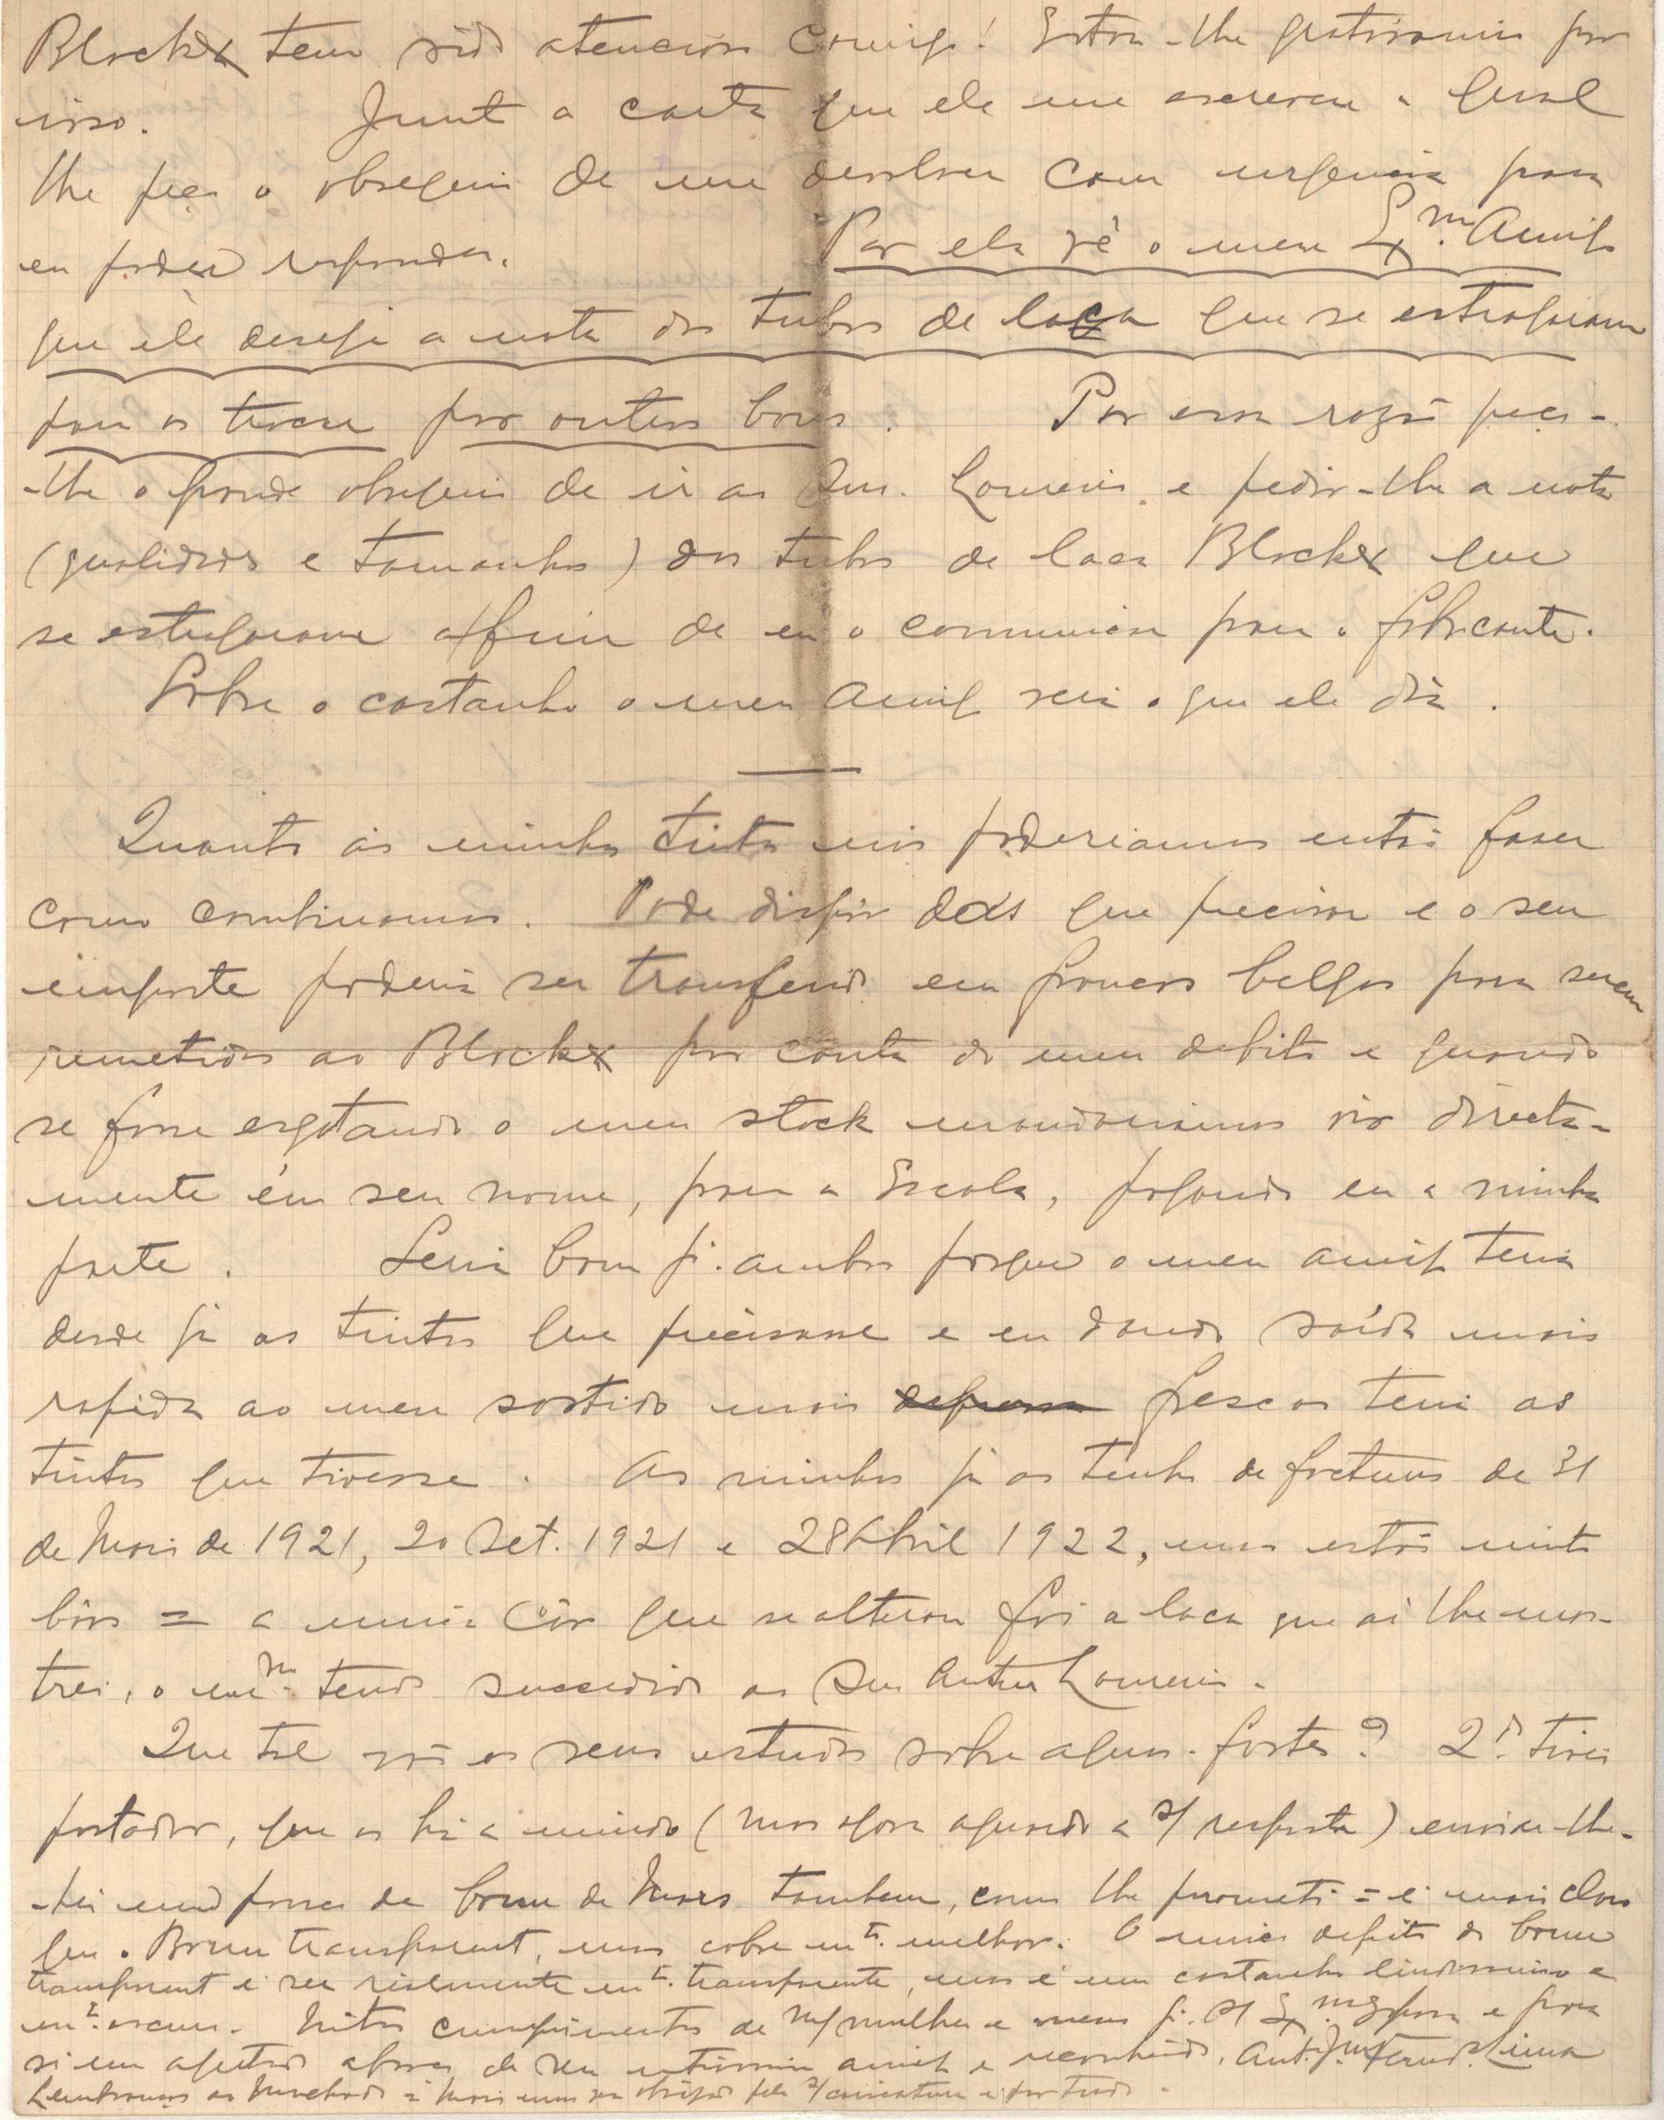 Blockx tem sido atencioso comigo! Estou-lhe gratissimo por
isso. Junto a carta que ele me escreveu a qual
lhe peço o obsequio de me devolver com urgencia para
eu poder responder. Por ela vê o meu Ex.mo Amigo
que êle deseja a nota dos tubos de laca que se estragaram
para os trocar por outros bons. Por essa razão peço-
-lhe o grande obsequio de ir ao Snr. Loureiro e pedir-lhe a nota
(qualidades e tamanhos) dos tubos de laca Blockx que
se estragaram afim de eu o communicar para o fabricante.
Sobre o castanho o meu amigo verá o que ele diz.
Quanto ás minhas tintas nós poderiamos então fazer
como combinamos. Pode dispôr das que precisar e o seu
importe poderia ser transferido em francos belgas para serem
remetidos ao Blockx por conta do meu debito e quando
se fosse esgotando o meu stock mandariamos vir directa-
mente em seu nome, para a Escola, pagando eu a minha
parte. Seria bom p.a ambos porque o meu amigo teria
desde já as tintas que precisasse e eu dando saída mais
rapida ao meu sortido mais frescas teria as
tintas que tivesse. As minhas já as tenho de facturas de 31
de Maio de 1921, 20 Set. 1921 e 28 Abril 1922, mas estão muito
bôas = a unica côr que se alterou foi a laca que aí lhe mos-
trei, o mesmo tendo succedido ao Snr Arthur Loureiro.
Que tal vão os seus estudos sobre aguas-fortes? 2.do tiver
portador, que os ha a miudo (mas agora aguardo a s/ resposta) enviar-lhe-
-hei uma porção de brun de Mars tambem, como lhe prometi = é mais claro
que o Brun transparent, mas cobre m.to melhor. O unico defeito do brun
transparent é ser realmente m.to transparente, mas é um castanho lindissimo e
m.to escuro. Muitos cumprimentos de m/ mulher e meus p.a S/ Ex.ma Esposa e para
si um apertado abraço do seu amigo e reconhecido, Ant. Lima
Lembranças ao Machado = Mais uma vez obrigado pela s/ caricatura e por tudo.